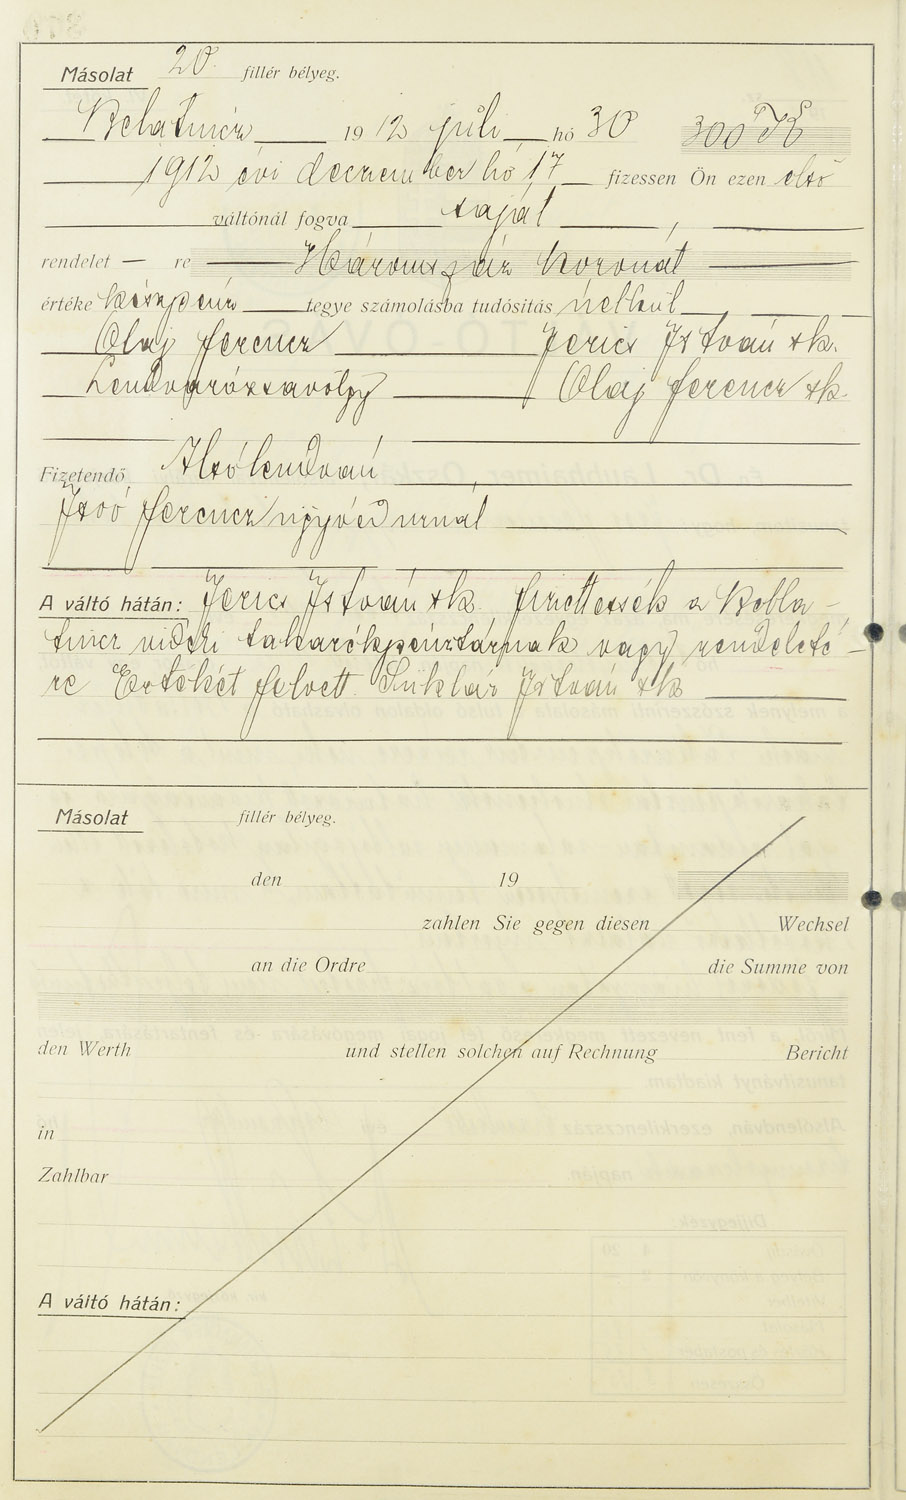 Másolat 20 fillér bélyeg.
Belatincz 1912 juli hó 30 300 K
1912 évi deczember hó 17 fizessen Ön ezen első
váltónál fogva saját
rendelet — re Háromszáz koronát
értéke készpénz tegye számolásba tudósítás nélkül
Olaj Ferencz Jerics István sk.
Lendvarózsavölgy Olaj Ferencz sk.
Fizetendő Alsólendván
Ferencz ügyvéd urnál
A váltó hátán: Jerics István sk. fizettessék a Bella-
tincz vidéki takarékpénztárnak vagy rendeleté-
re Értékét felvett István sk
Másolat fillér bélyeg.
den 19
zahlen Sie gegen diesen Wechsel
an die Ordre die Summe von
den Werth und stellen solchen auf Rechnung Bericht
in
Zahlbar
A váltó hátán: